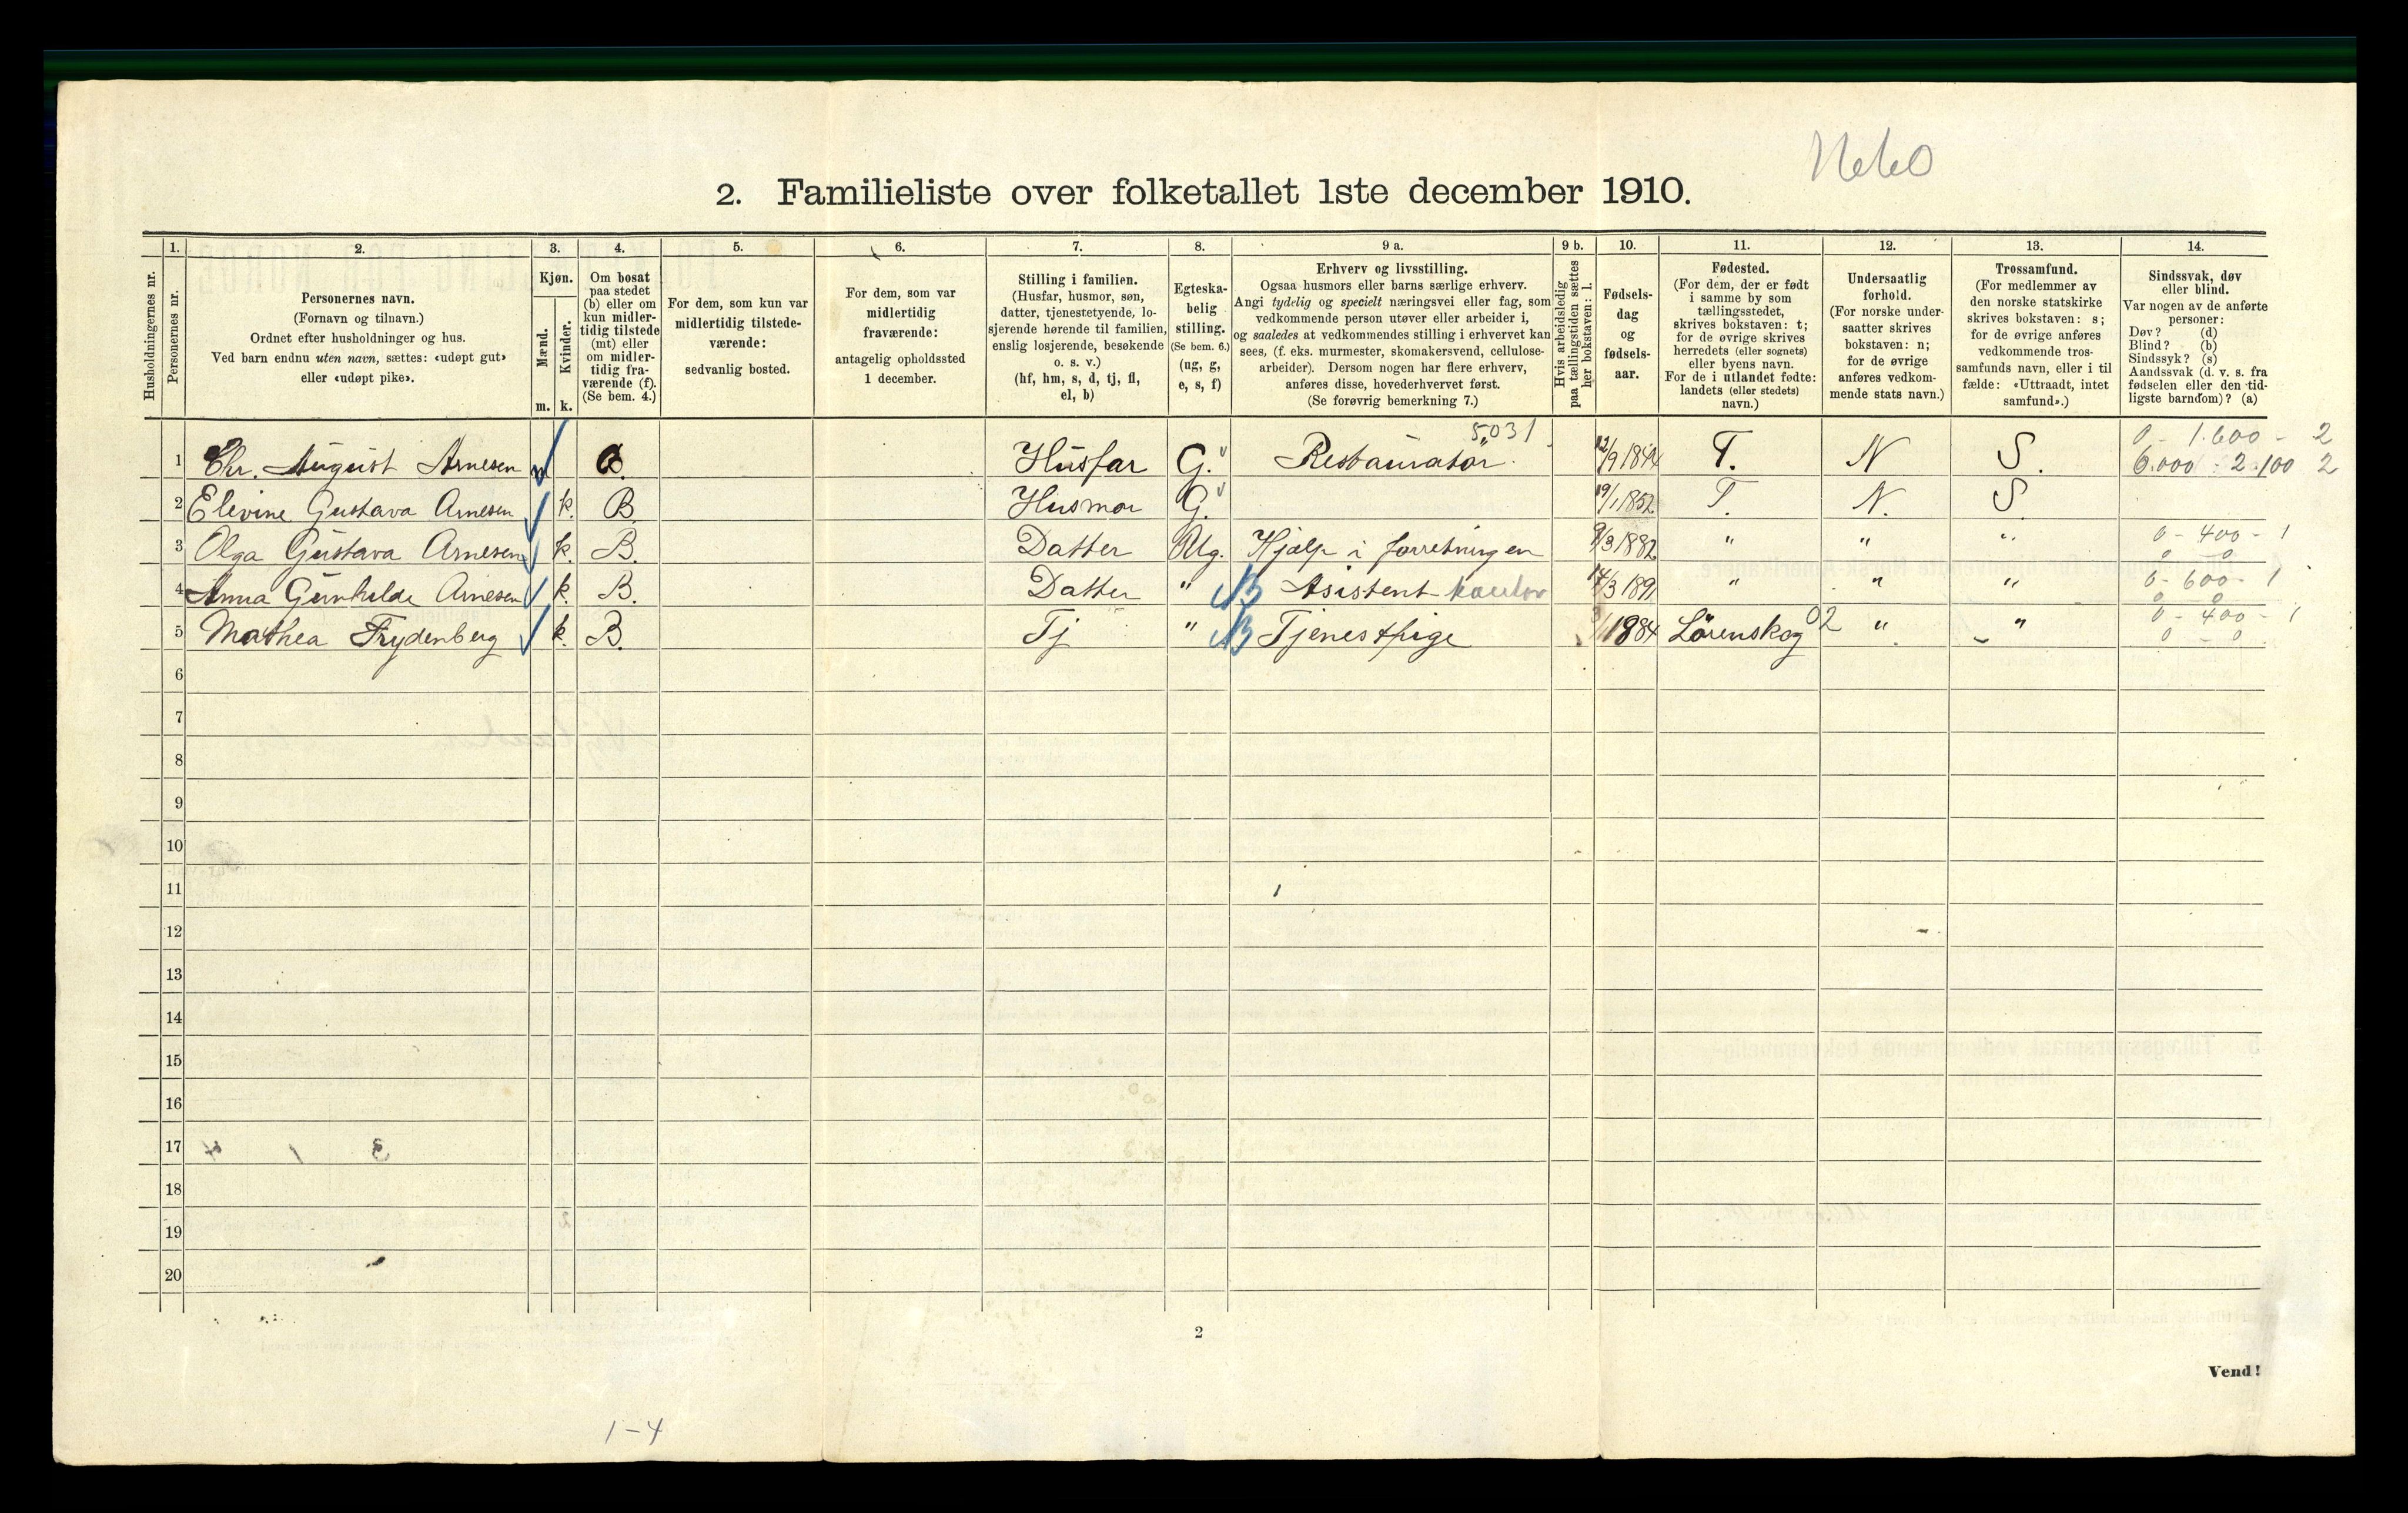 2. Familieliste over folketallet 1ste december 1910.
Husholdningernes nr.
1.
Personernes nr.
2.
Personernes navn.
(Fornavn og tilnavn.)
Ordnet efter husholdninger og hus.
Ved barn endnu uten navn, sættes: «udøpt gut»
eller «udøpt pike».
3.
Kjøn.
Mænd.
m.
Kvinder.
k.
4.
Om bosat
paa stedet
(b) eller om
kun midler-
tidig tilstede
(mt) eller
om midler-
tidig fra-
værende (f).
(Se bem. 4.)
5.
For dem, som kun var
midlertidig tilstede-
værende:
sedvanlig bosted.
6.
For dem, som var
midlertidig
fraværende:
antagelig opholdssted
1 december.
7.
Stilling i familien.
(Husfar, husmor, søn,
datter, tjenestetyende, lo-
sjerende hørende til familien,
enslig losjerende, besøkende
o. s. v.)
(hf, hm, s, d, tj, fl,
el, b)
8.
Egteska-
belig
stilling.
(Se bem. 6.)
(ug, g,
e, s, f)
9 a.
Erhverv og livsstilling.
Ogsaa husmors eller barns særlige erhverv.
Angi tydelig og specielt næringsvei eller fag, som
vedkommende person utøver eller arbeider i,
og saaledes at vedkommendes stilling i erhvervet kan
sees, (f. eks. murmester, skomakersvend, cellulose-
arbeider). Dersom nogen har flere erhverv,
anføres disse, hovederhvervet først.
(Se forøvrig bemerkning 7.)
9 b.
Hvis arbeidsledig
paa tællingstiden sættes
her bokstaven: l.
10.
Fødsels-
dag
og
fødsels-
aar.
11.
Fødested.
(For dem, der er født
i samme by som
tællingsstedet,
skrives bokstaven: t;
for de øvrige skrives
herredets (eller sognets)
eller byens navn.
For de i utlandet fødte:
landets (eller stedets)
navn.)
12.
Undersaatlig
forhold.
(For norske under-
saatter skrives
bokstaven: n;
for de øvrige
anføres vedkom-
mende stats navn.)
13.
Trossamfund.
(For medlemmer av
den norske statskirke
skrives bokstaven: s;
for de øvrige anføres
vedkommende tros-
samfunds navn, eller i til
fælde: «Uttraadt, intet
samfund».)
14.
Sindssvak, døv
eller blind.
Var nogen av de anførte
personer:
Døv? (d)
Blind? (b)
Sindssyk? (s)
Aandssvak (d. v. s. fra
fødselen eller den tid-
ligste barndom)? (a)
5031 0 - 1.600 - 2
1 Chr. August Arnesen m B. Husfar G. Restauratør. 12/9 1844 T. N S. 6.000 - 2.100 2
2 Elevine Gustava Arnesen k. B. Husmor G. 19/1 1852 T. N. S.
3 Olga Gustava Arnesen k. B. Datter Ug. Hjælp i forretningen 9/3 1882 " " " 0 - 400 - 1
0 0
4 Anna Gunhilde Arnesen k. B. Datter " Asistent kontor 14/3 1891 " " " 0 - 600 - 1
0 0
5 Mathea Frydenberg k. B. Tj " Tjenestpige 1884 Lörenskog 02 " " 0 - 400 - 1
0 - 0
6
7
8
9
10
11
12
13
14
15
16
17
18
19
20
2
Vend!
1-4